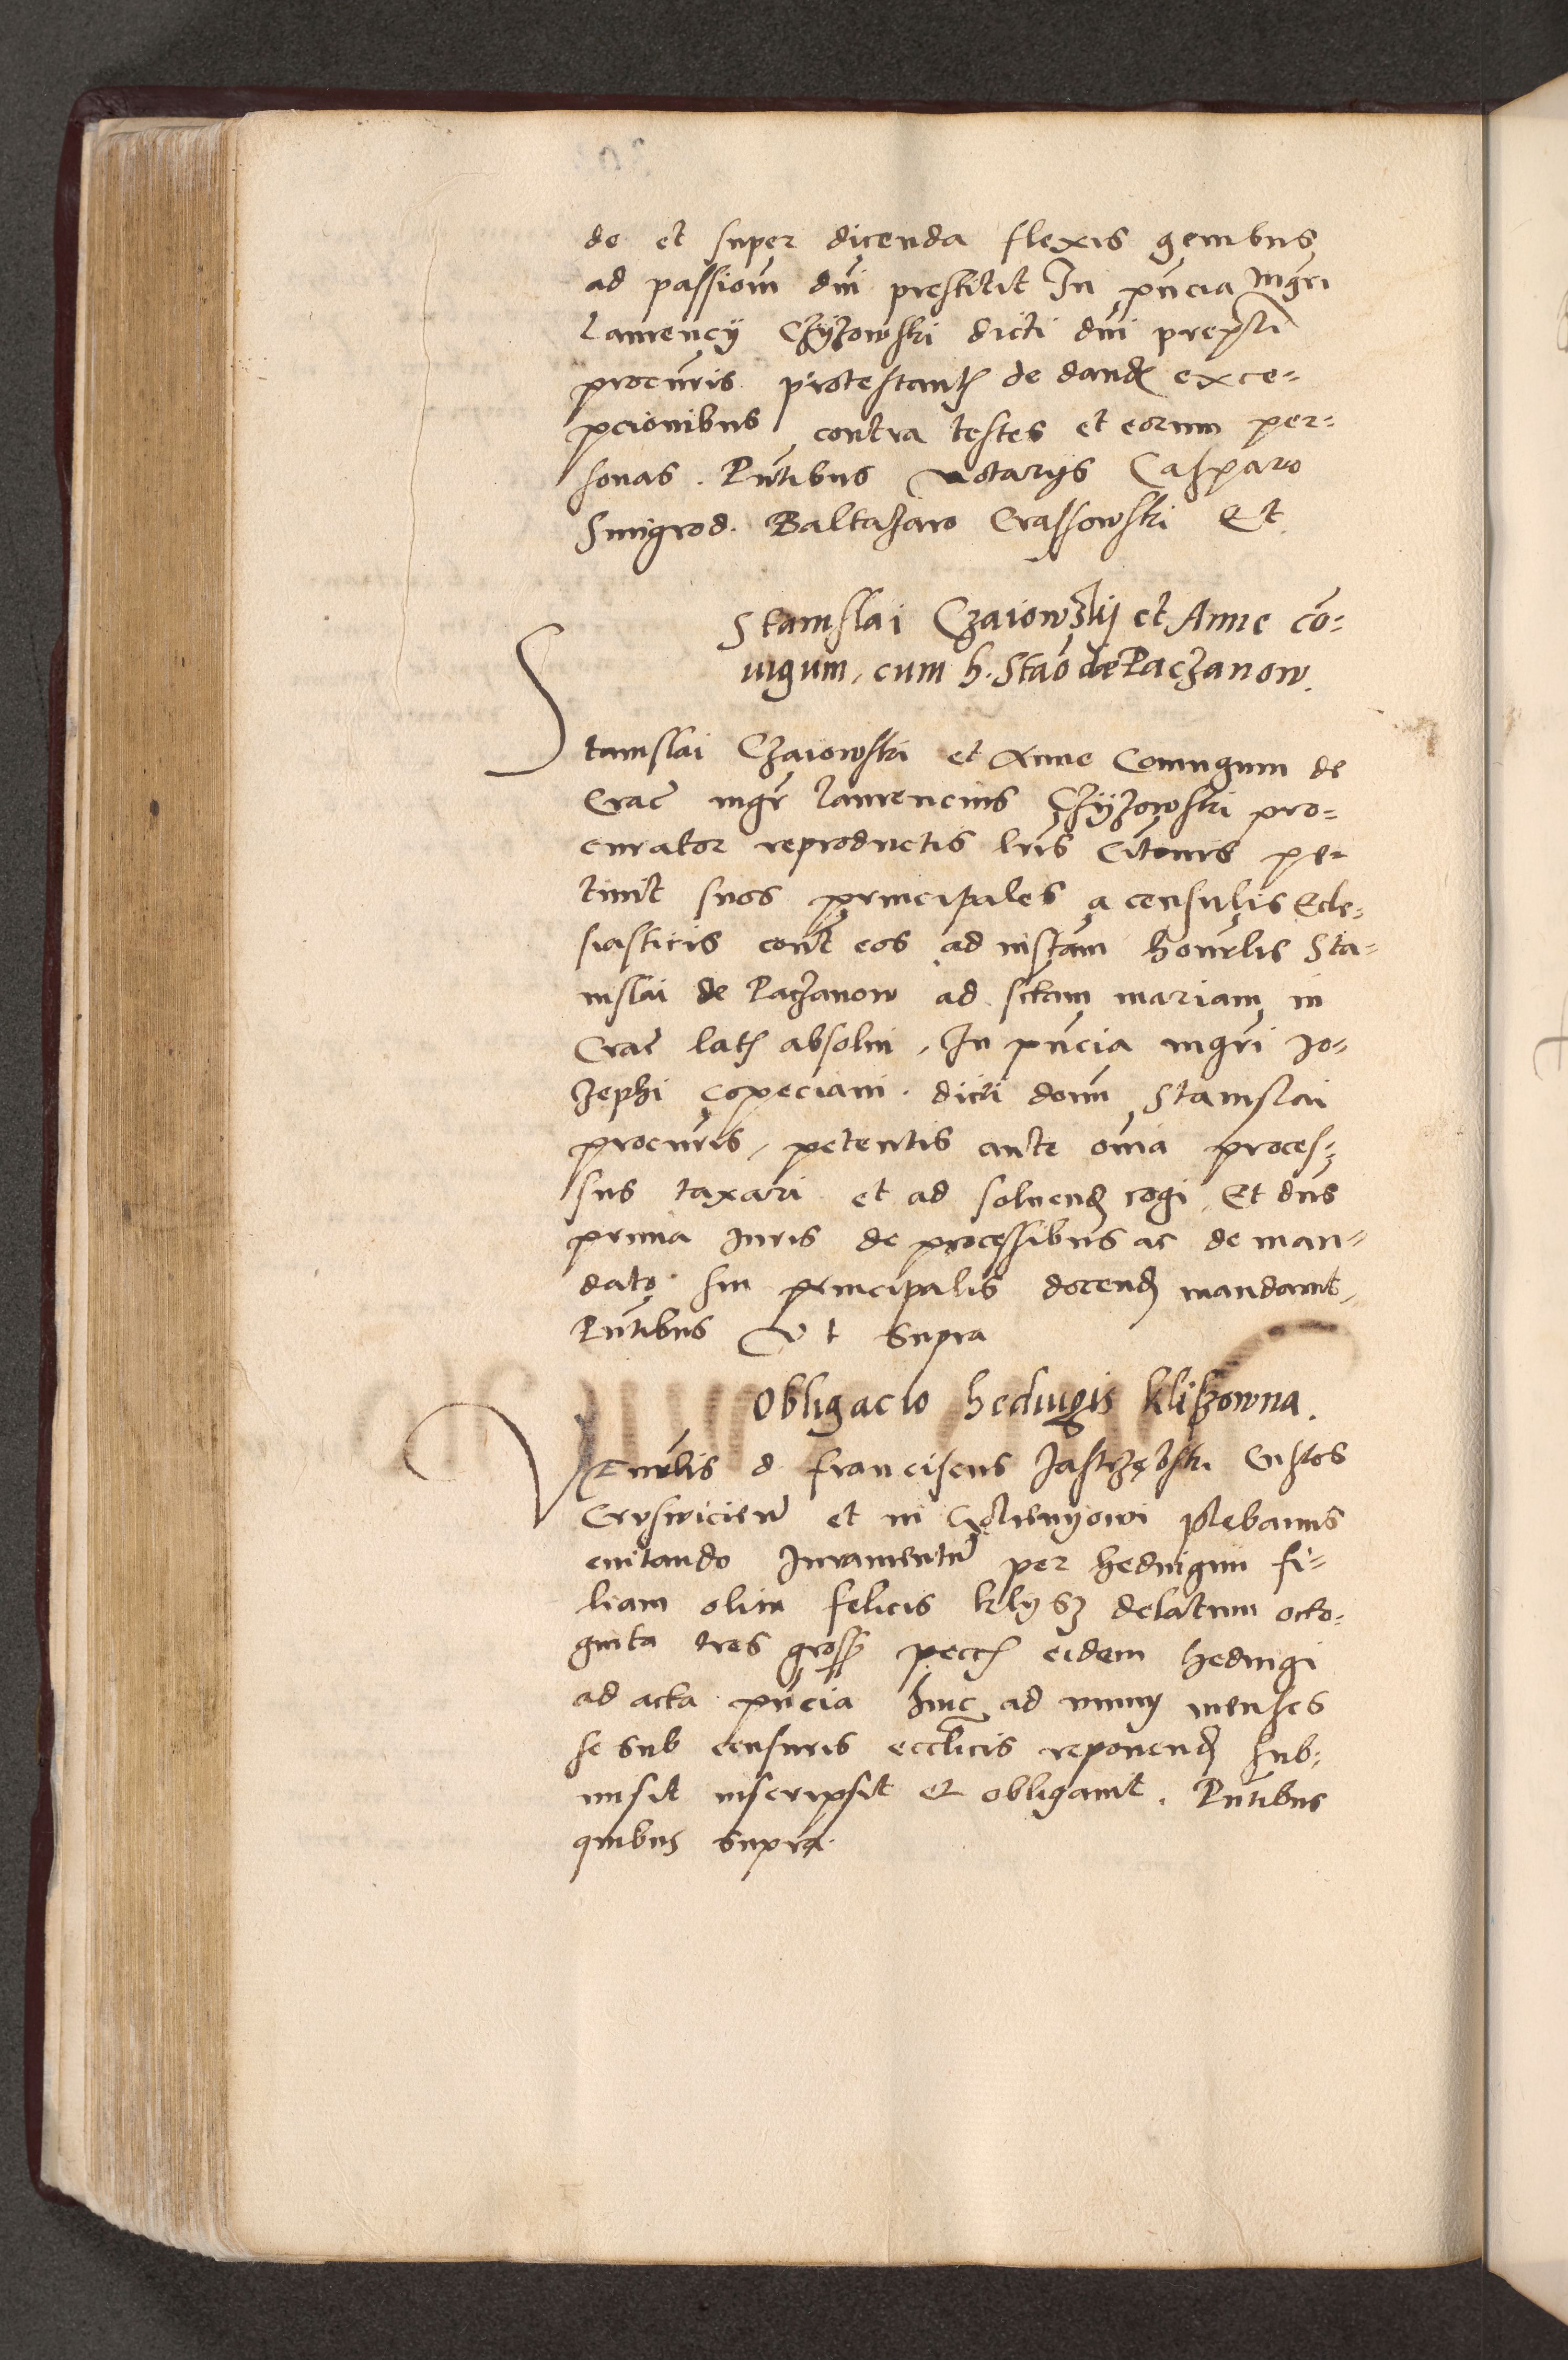 de et super dicenda flexis genibus
ad passiom̄ dn̄i prestitit In pn̄cia mgr̄i
laurencij Czijzowski dicti dn̄i prep̄sti
procur̄is protestantꝭ de dandꝭ exce=
pcionibus contra testes et eorum per=
sonas . Pn̄tibus notarijs Casparo
Smigrod. Baltazaro Crassowski Et
Stanislai Czaiowskij et Anne cō=
iugum, cum h. Stāo de Paczanow.
Stanislai Czaiowski et Anne Coniugum de
Crac̄ mgr̄ laurencius Czijzowski pro=
curator reproductis lr̄is Citōnis pe=
tiuit suos principales a censuris Eccle=
siasticis cont̄ eos ad instam̄ honor̄lis Sta=
nislai de Paczanow ad sctam mariam in
Crac̄ latꝭ absolui , In pn̄cia mgr̄i Jo=
zephi Copeciani . dicti domī Stanislai
procur̄is, petentis ante om̄ia proces=
sus taxari et ad soluendꝭ cogi , Et dn̄s
prima iuris de processibus ac de man=
dato sui principalis docendꝭ mandauit,
Pn̄tibus Vt Supra
Obligacio heduigis Kliszowna.
VEnr̄lis d. franciscus Jastrzębski Custos
Crusuicien̄ et in plebanus
euitando Iuramentū per heduigim fi=
liam olim felicis Klysz delatum octo=
ginta tres grosꝭ peccꝭ eidem heduigi
ad acta pn̄cia hinc ad menses
se sub censuris eccl̄icis reponendꝭ sub=
misit inscripsit et obligauit . Pn̄tibus
quibus supra.